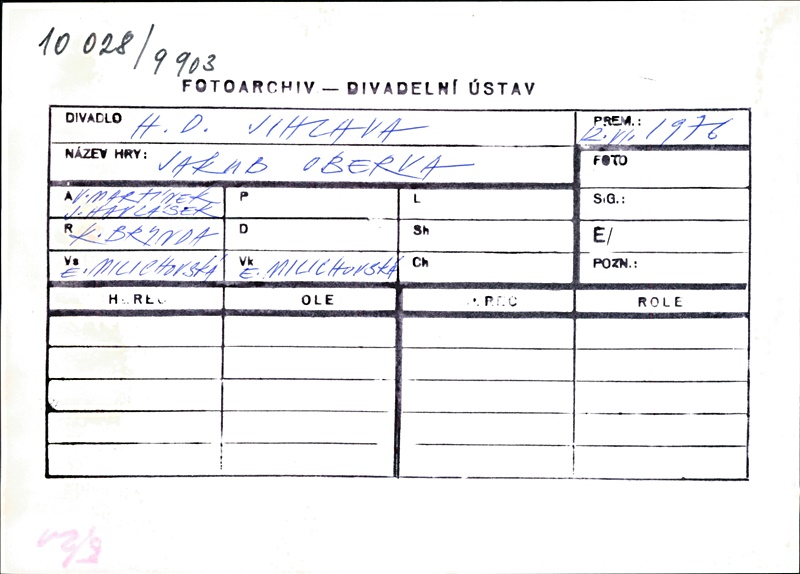 10 028/9 903
FOTOARCHIV — DIVADELNÍ ÚSTAV
DIVADLO H. D. JIHLAVA
PREM.: 12. VI. 1976
NÁZEV HRY: JAKUB OBERVA
FOTO
A V. MARTINEK
J. HAVLÁSEK
P
L
SIG.:
R K. BRYNDA
D
Sh
E/
Vs E. MILICHOVSKÁ
Vk E. MILICHOVSKÁ
Ch
POZN.:
HEREC
OLE
REC
ROLE